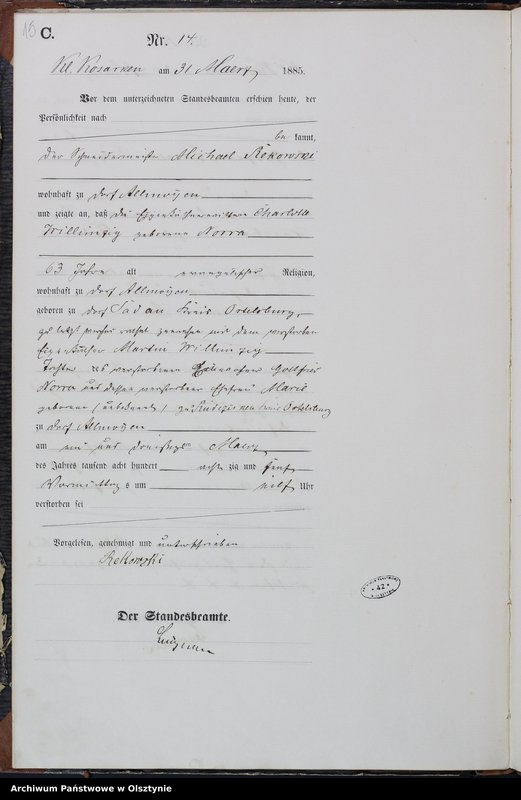 15 C.
Nr. 14.
Kl. Rosarken am 31 Maerz 1885.
Vor dem unterzeichneten Standesbeamten erschien heute, der
Persönlichkeit nach
be kannt,
der Schneidermeister Michael Rekowski
wohnhaft zu Dorf Allmoyen
und zeigte an, daß die Eigenkäthnerwittwe Charlotte
Willimzig geborene Norra
63 Jahre alt evangelischer Religion,
wohnhaft zu Dorf Allmoyen
geboren zu Dorf Kreis Ortelsburg,
zu letzt verheirathet gewesen mit dem verstorbenen
Eigenkäthner Martin Willimzig
Tochter des verstorbenen Gottfried
Norra und dessen verstorbener Ehefrau Marie
geborene (unbekannt) zu Kreis Ortelsburg
zu Dorf Allmoyen
am ein und dreißigsten Maerz
des Jahres tausend acht hundert acht zig und fünf
Vormittags um Uhr
verstorben sei
Vorgelesen, genehmigt und unterschrieben
Rekowski
Der Standesbeamte.
42
Archiwum Państwowe w Olsztynie